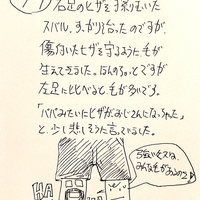 右足のヒザを擦りむいた
スバル。すっかり治ったのですが、
傷付いたヒザを守るように毛が
生えてきました。ほんのちょっとですが
左足に比べると、毛が多いです。
「パパみたいにヒザがおじさんになっちゃった」
と、少し悲しそうに言っていました。
みんな毛が
HA